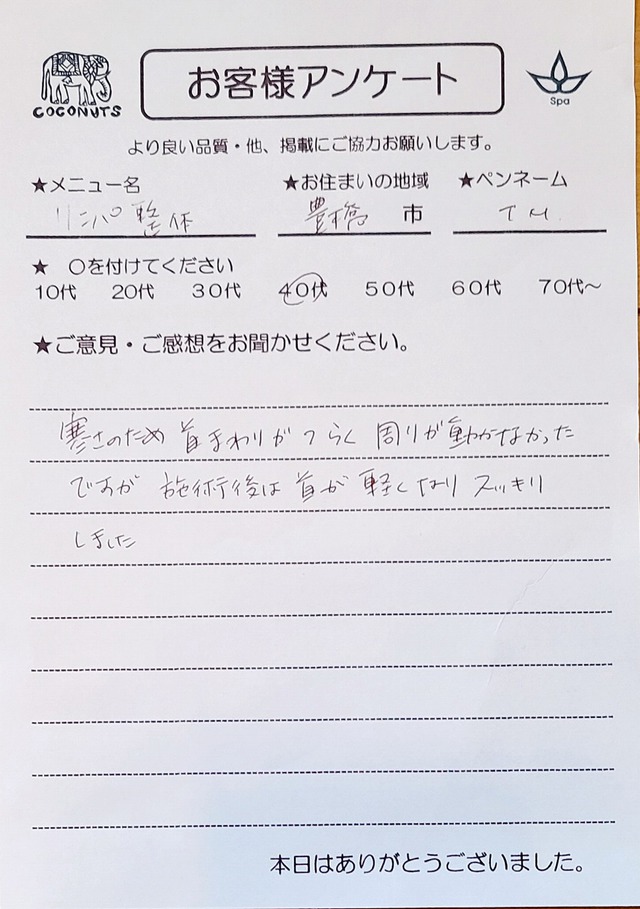 COCONUTS
お客様アンケート
Spa
より良い品質・他、掲載にご協力お願いします。
★メニュー名 ★お住まいの地域 ★ペンネーム
リンパ整体 豊橋 市 T M.
★ ○を付けてください
10代 20代 30代 40代 50代 60代 70代～
★ご意見・ご感想をお聞かせください。
寒さのため 首まわりがつらく 周りが動かなかった
ですが 施術後は 首が 軽くなり スッキリ
しました
本日はありがとうございました。